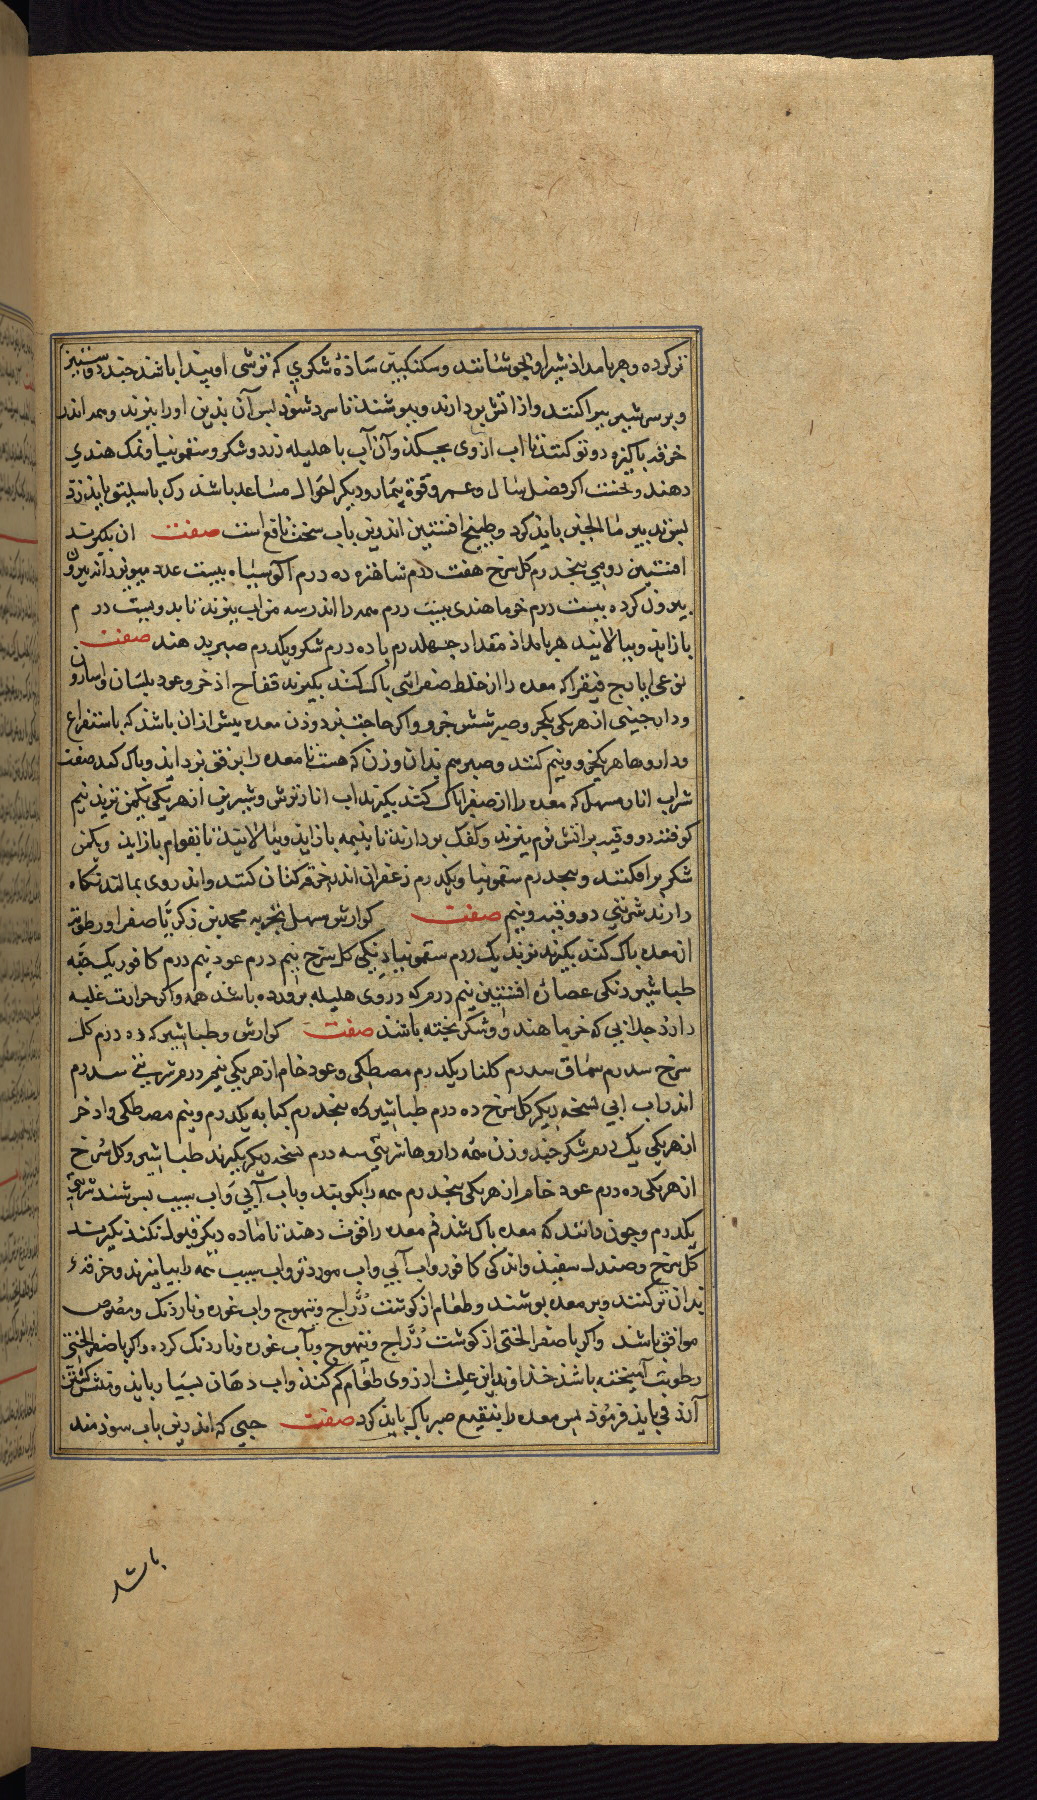 تر کرده و هر بامداذ شیر او بجوشانند و سکنکبین ساذهٔ شکری که ترشی او پیدا باشد چند دو ستیر
و بر سر شیر پیراکنند و از اتش بردارند و بپوشند تا سرد شود پس آن پذین او را ببرند و همه اندر
خرقه پاکیزه دوتو کنند تا اب از وی بچکد و آن آب با هلیله زرد و شکر و سقمونیا و نمک هندی
دهند و نخست اکر فصل سال و عمر و قوة بیمار و دیکر احوال مساعد باشد رک باسلیق باید زذ
پس تدبیر ما الجبن باید کرد و طبیخ افسنتین اندرین باب سخت نافع است صفت ان بکیرند
افسنتین رومی پنجدرم کل سرخ هفت درم شاهتره ده درم الوی سیاه بیست عدد میویز دانه بیرون
بیرون کرده بیست درم خرما هندی بیست درم همه را اندر سه من اب بپزند تا بد و بیست درم
باز اید و بپالایند هر بامداد مقدار چهلدرم با ده درم شکر و یکدرم صبر بدهند صفت
نوعی ایارج فیقرا که معده را از خلط صفرائی پاک کند بکیرند فقاح اذخر و عود بلسان و اسارون
و دارجینی از هر یکی یکجزو صبر شش جزو و اکر حاجتمندی وزن معده بیش از ان باشد که باستفراغ
و داروها هر یکی دو نیم کنند و صبر هم بدان وزن که هست تا معده را برفق بزداید و پاک کند صفت
شراب انار مسهل که معده را از صفرا پاک کند بکیرند اب انار ترش و شیرین از هر یکی یکمن تربد نیم
کوفته دو وقیه بر اتش نرم بپزند و کفک بردارند تا بنیمه باز اید و بپالایند تا بقوام باز اید و یکمن
شکر بر افکنند و پنجدرم سقمونیا و یکدرم زعفران اندر خرقه کتان کنند و اندر وی بمالند و نکاه
دارند شربتی دو وقیه و نیم صفت کوارش مسهل تجربه محمد بن زکریا صفرا و رطوبت
از معده پاک کند بکیرند تربد یک درم سقمونیا دنکی کل سرخ نیم درم عود نیم درم کافور یک حبه
طباشیر دنکی عصاره افسنتین نیم درم که در وی هلیله پرورده باشد همه و اکر حرارت غلبه
دارد جلابی که خرما هندو و شکر پخته باشند صفت کوارش و طباشیر که ده درم کل
سرخ سدرم سماق سدرم کلنار یکدرم مصطکی و عود خام از هر یکی نیمدرم شربتی سدرم
اندر اب ابی نسخه دیکر کل سرخ ده درم طباشیر که پنجدرم کبابه یکدرم و نیم مصطکی و اذخر
از هر یکی یک درم شکر چند وزن همه داروها شربتی سه درم نسخه دیکر بکیرند طباشیر و کل سرخ
از هر یکی ده درم عود خام از هر یکی پنجدرم همه را بکوبند و باب آبی و اب سیب بسرشند شربتی
یکدرم و چون دانند که معده پاک شد فم معده را قوت دهند تا ماده دیکر قبول نکند بکیرند
کل سرخ و صندل سفید و اندکی کافور و اب آبی و اب مورد تر و اب سیب همه را بیامیزند و خرقهٔ
بدان تر کنند و بر معده پوشند و طعام از کوشت دراج و تیهوج و اب غوره و ناردنک و مصوص
موافق باشد و اکر با صفرا لختی از کوشت دراج و تیهوج و بآب غوره و ناردنک کرده و اکر با صفرا لختی
رطوبت آمیخته باشد خداوند این علت ارزوی طعام کم کند و اب دهان بسیار باید و منش کشتن
آرد قی باید فرمود پس معده را بنقیع صبر پاک باید کرد صفت حبی که اندرین باب سوذمند
باشد